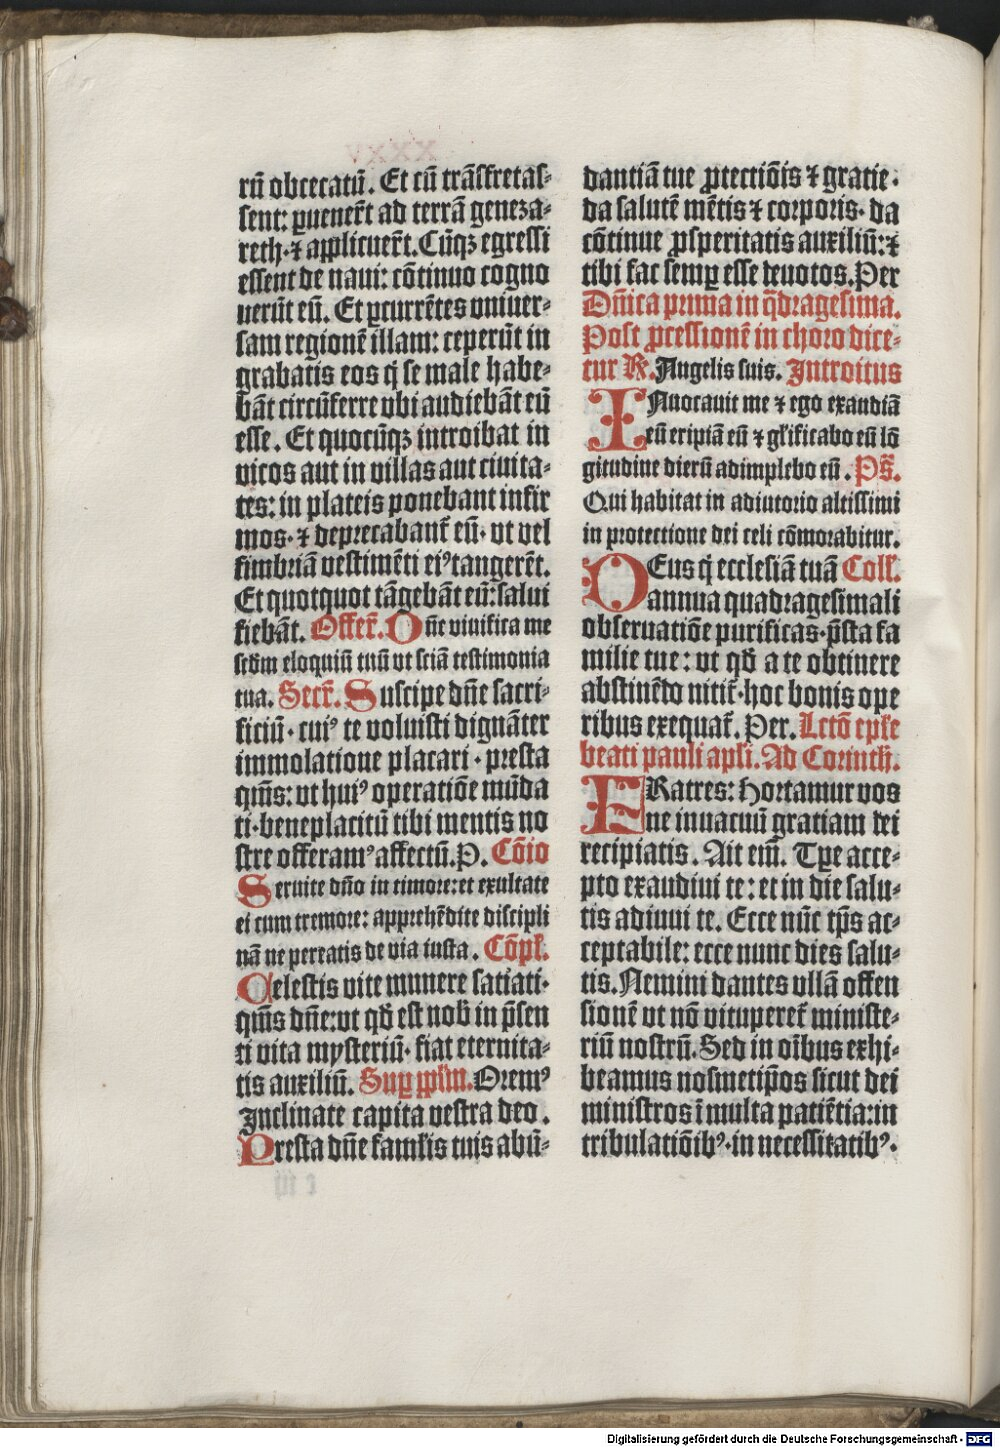 rū obcecatū. Et cū trāsfretas⸗
sent: ꝑuener̄t ad terrā geneza⸗
reth· ⁊ applicuer̄t. Cūqꝫ egressi
essent de naui: cōtinuo cogno
uerūt eū. Et ꝑcurrētes vniuer⸗
sam regionē illam: ceperūt in
grabatis eos q̇ se male habe⸗
bāt circūferre vbi audiebāt eū
esse. Et quocūqꝫ introibat in
vicos aut in villas aut ciuita⸗
tes: in plateis ponebant infir
mos· ⁊ deprecabant̄ eū· vt vel
fimbriā vestimēti eiꝰ tangerēt.
Et quotquot tāgebāt eū: salui
fiebāt. Offer̄. Dn̄e viuifica me
scdm eloquiū tuū vt sciā testimonia
tua. Secr̄. Suscipe dn̄e sacri⸗
ficiū · cuiꝰ te voluisti dignāter
immolatione placari · presta
qm̄s: vt huiꝰ operatiōe mūda
ti· beneplacitū tibi mentis no
stre offeramꝰ affectū. P. Cōio
Seruite dn̄o in timore: et exultate
ei cum tremore: apprehēdite discipli
nā ne pereatis de via iusta. Cōpł.
Celestis vite munere satiati·
qm̄s dn̄e: vt qđ est nob̄ in p̄sen
ti vita mysteriū · fiat eternita⸗
tis auxiliū. Suꝑ ppl̄m. Oremꝰ
Inclinate capita vestra deo.
Presta dn̄e famlis tuis abū⸗
dantiā tue ꝓtectiōis ⁊ gratie·
da salutē mētis ⁊ corporis· da
cōtinue ꝓsperitatis auxiliū: ⁊
tibi fac semꝑ esse deuotos. Per
Dn̄ica prima in q̄dragesima.
Post ꝓcessionē in choro dice⸗
tur ℟. Angelis suis. Introitus
INuocauit me ⁊ ego exaudiā
eū eripiā eū ⁊ gl̄ificabo eū lō
gitudine dierū adimplebo eū. Ps̄.
Qui habitat in adiutorio altissimi
in protectione dei celi cōmorabitur.
DEus q̇ ecclesiā tuā Coll̄.
annua quadragesimali
obseruatiōe purificas· p̄sta fa
milie tue: vt qđ a te obtinere
abstinēdo nitit̄· hoc bonis ope
ribus exequat̄. Per. Lctō epl̄e
beati pauli apl̄i. Ad Corinth̄.
FRatres: Hortamur vos
ne in vacuū gratiam dei
recipiatis. Ait em̄. Tꝑe acce⸗
pto exaudiui te: et in die salu⸗
tis adiuui te. Ecce nūc tp̄s ac⸗
ceptabile: ecce nunc dies salu⸗
tis. Nemini dantes vllā offen
sionē vt nō vituperet̄ ministe⸗
riū nostrū. Sed in oībus exhi⸗
beamus nosmetip̄os sicut dei
ministros ī multa patiētia: in
tribulatiōibꝰ· in necessitatibꝰ.
Digitalisierung gefördert durch die Deutsche Forschungsgemeinschaft - DFG